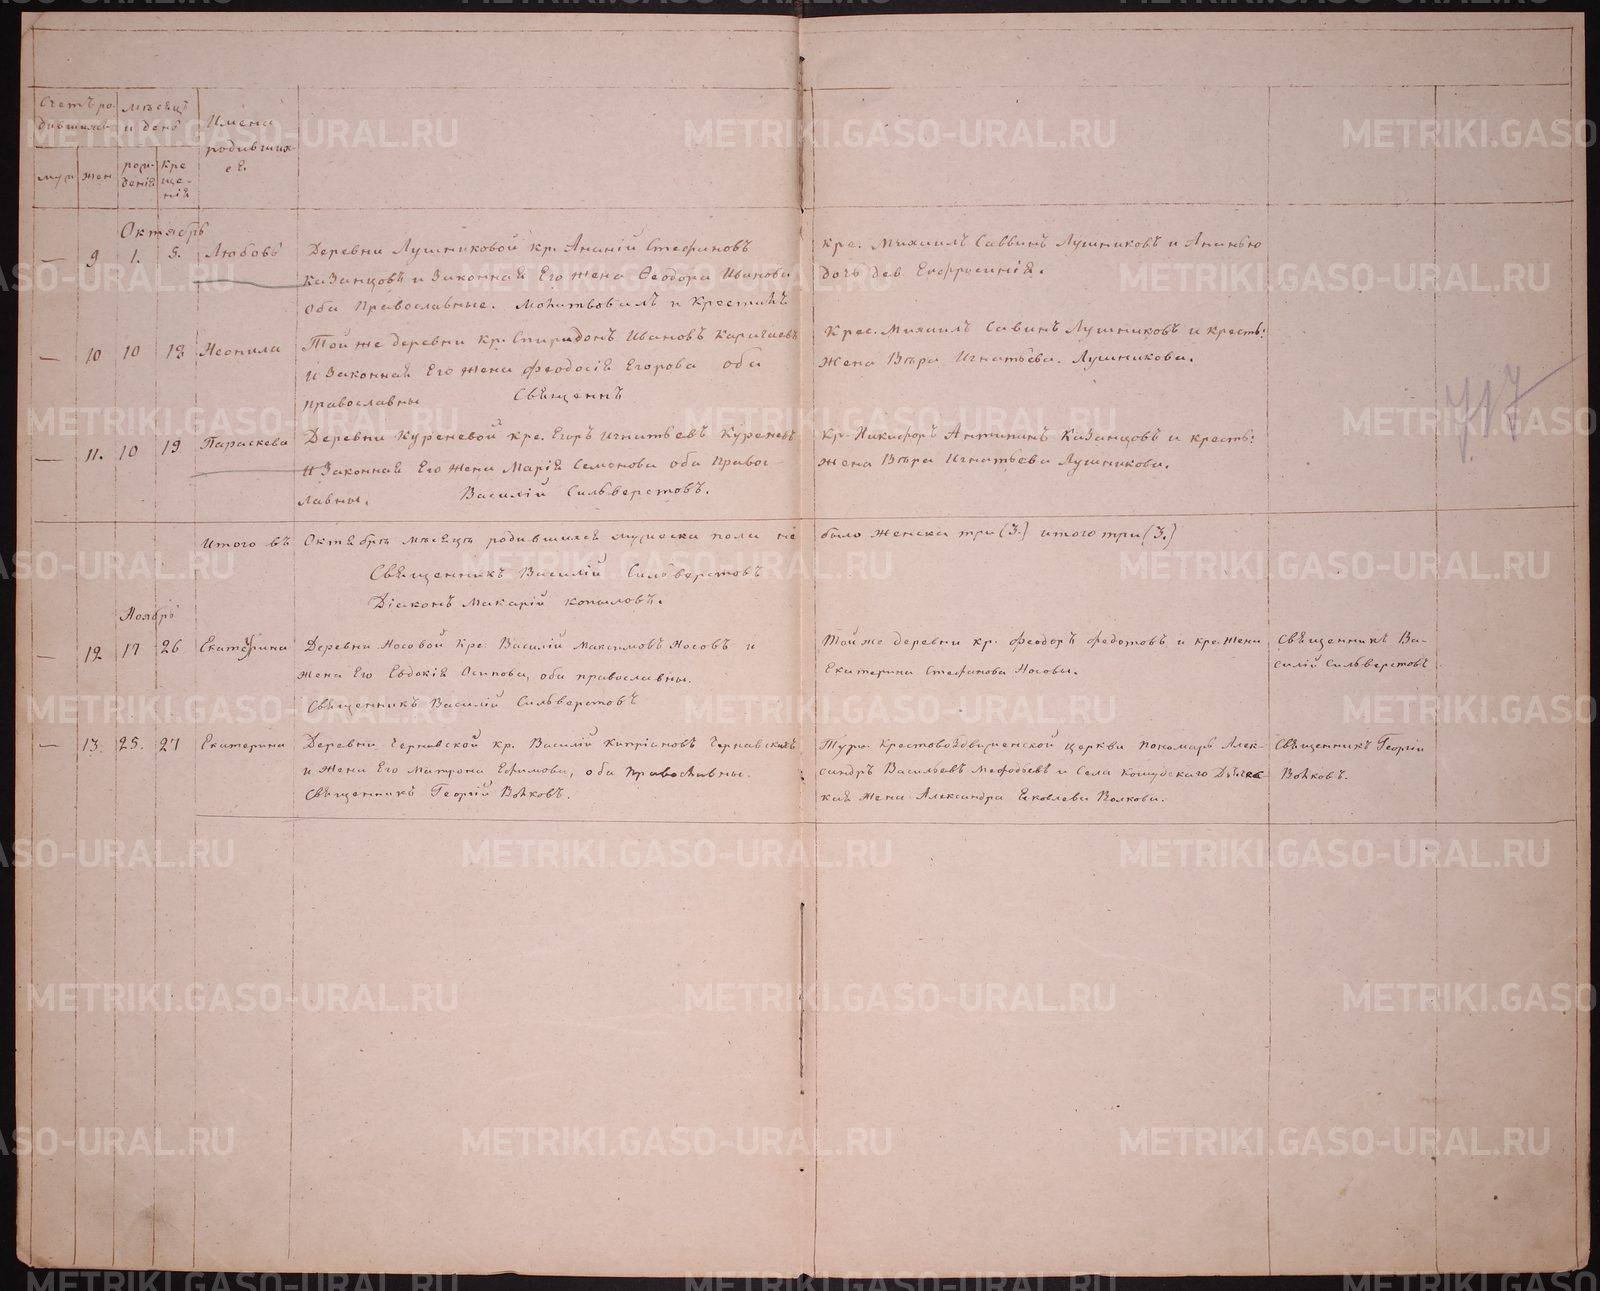 Счетъ ро-
дившихся
Мѣсяцъ
и день
Имена
родивших-
ся.
муж
жен
рож-
денія
кре
ще-
нія
Октябрь
— 9 1. 5. Любовь
Деревни Лушниковой кр. Ананій Стефановъ
Казанцовъ и Законная Его жена Феодора Иванова
Оба Православные. Молитвовалъ и Крестилъ
Кре. Михаилъ Саввинъ Лушниковъ и Ананью
дочь дев. Ефросинія.
— 10 10 12 Неонила
Той же деревни кр. Спиридонъ Ивановъ Карагаевъ
И Законная Его Жена Феодосія Егорова оба
православны Священъ
Крес. Михаилъ Савинъ Лушниковъ и кресть:
Жена Вѣра Игнатьева. Лушникова.
717
— 11. 10 19 Параскева
Деревни Куреневой кре. Егоръ Игнатьевъ Куреневъ
И Законная Его Жена Марія Семонова оба Правос-
лавны. Василій Сильверстовъ.
Кр. Никифоръ Антипинъ Казанцовъ и кресть:
Жена Вѣра Игнатьева Лушникова.
Итого въ Октябрѣ мѣсяцѣ родившихся мужеска пола не было Женска три (3.) итого три (3.)
Священникъ Василій Сильверстовъ
Діаконъ Макарій Копыловъ.
Ноябрь
— 12 17 26 Екатерина
Деревни Носовой Кре. Василій Максимовъ Носовъ и
Жена Его Евдокія Осипова, оба православны.
Священникъ Василій Сильверстовъ
Той же деревни кр. Феодоръ Федотовъ и кре. Жена
Екатерина Стефанова Носовы.
Священникъ Ва-
силій Сильверстовъ
— 13. 25. 27 Екатерина
Деревни Чернавской кр. Василій Кипріановъ Чернавскихъ
и Жена Его Матрона Ефимова, оба Православны.
Священникъ Георгій Волковъ.
Туры. Крестовоздвиженской церкви пономарь Алек-
сандръ Васильевъ Мефодьевъ и Села Кошузскаго Дьячес-
кая Жена Александра Яковлева Волкова.
Священникъ Георгій
Волковъ.